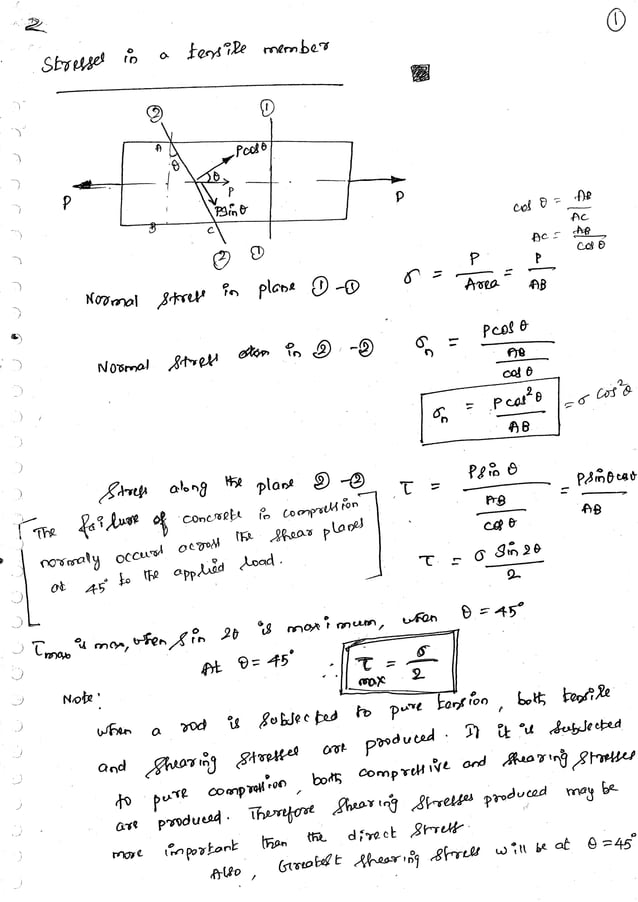 2
①
Stresses in a tensile member
② ①
A Pcosθ
θ θ
P P P
Psinθ
B C
② ①
cos θ = AB/AC
AC = AB/cosθ
Normal stress in plane ①-① σ = P/Area = P/AB
Normal stress in ②-② σn = Pcosθ/(AB/cosθ)
σn = Pcos²θ/AB = σ cos²θ
Stress along the plane ②-② τ = Psinθ/(AB/cosθ) = Psinθcosθ/AB
[The failure of concrete in compression
normaly occurs across the shear planes
at 45° to the applied load.]
τ = σ Sin2θ/2
τmax is max, when Sin 2θ is maximum, when θ = 45°
At θ = 45° ∴ τmax = σ/2
Note:
When a rod is Subjected to pure tension, both tensile
and Shearing Stresses are produced. If it is Subjected
to pure compression, both compressive and Shearing Stresses
are produced. Therefore Shearing Stresses produced may be
more important than the direct Stress.
Also, Greatest Shearing Stress will be at θ=45°